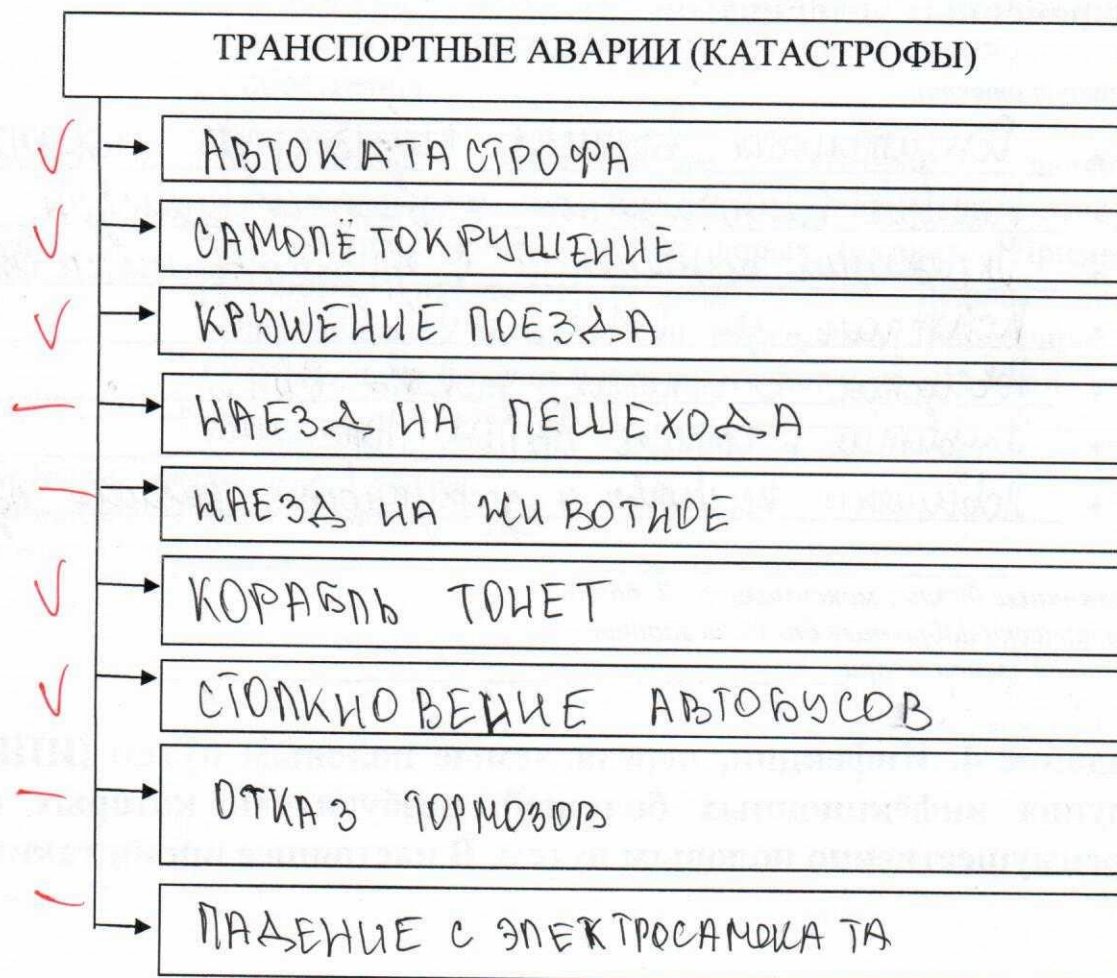 ТРАНСПОРТНЫЕ АВАРИИ (КАТАСТРОФЫ)
АВТОКАТАСТРОФА
САМОЛЁТОКРУШЕНИЕ
КРУШЕНИЕ ПОЕЗДА
НАЕЗД НА ПЕШЕХОДА
НАЕЗД НА ЖИВОТНОЕ
КОРАБЛЬ ТОНЕТ
СТОЛКНОВЕНИЕ АВТОБУСОВ
ОТКАЗ ТОРМОЗОВ
ПАДЕНИЕ С ЭЛЕКТРОСАМОКАТА